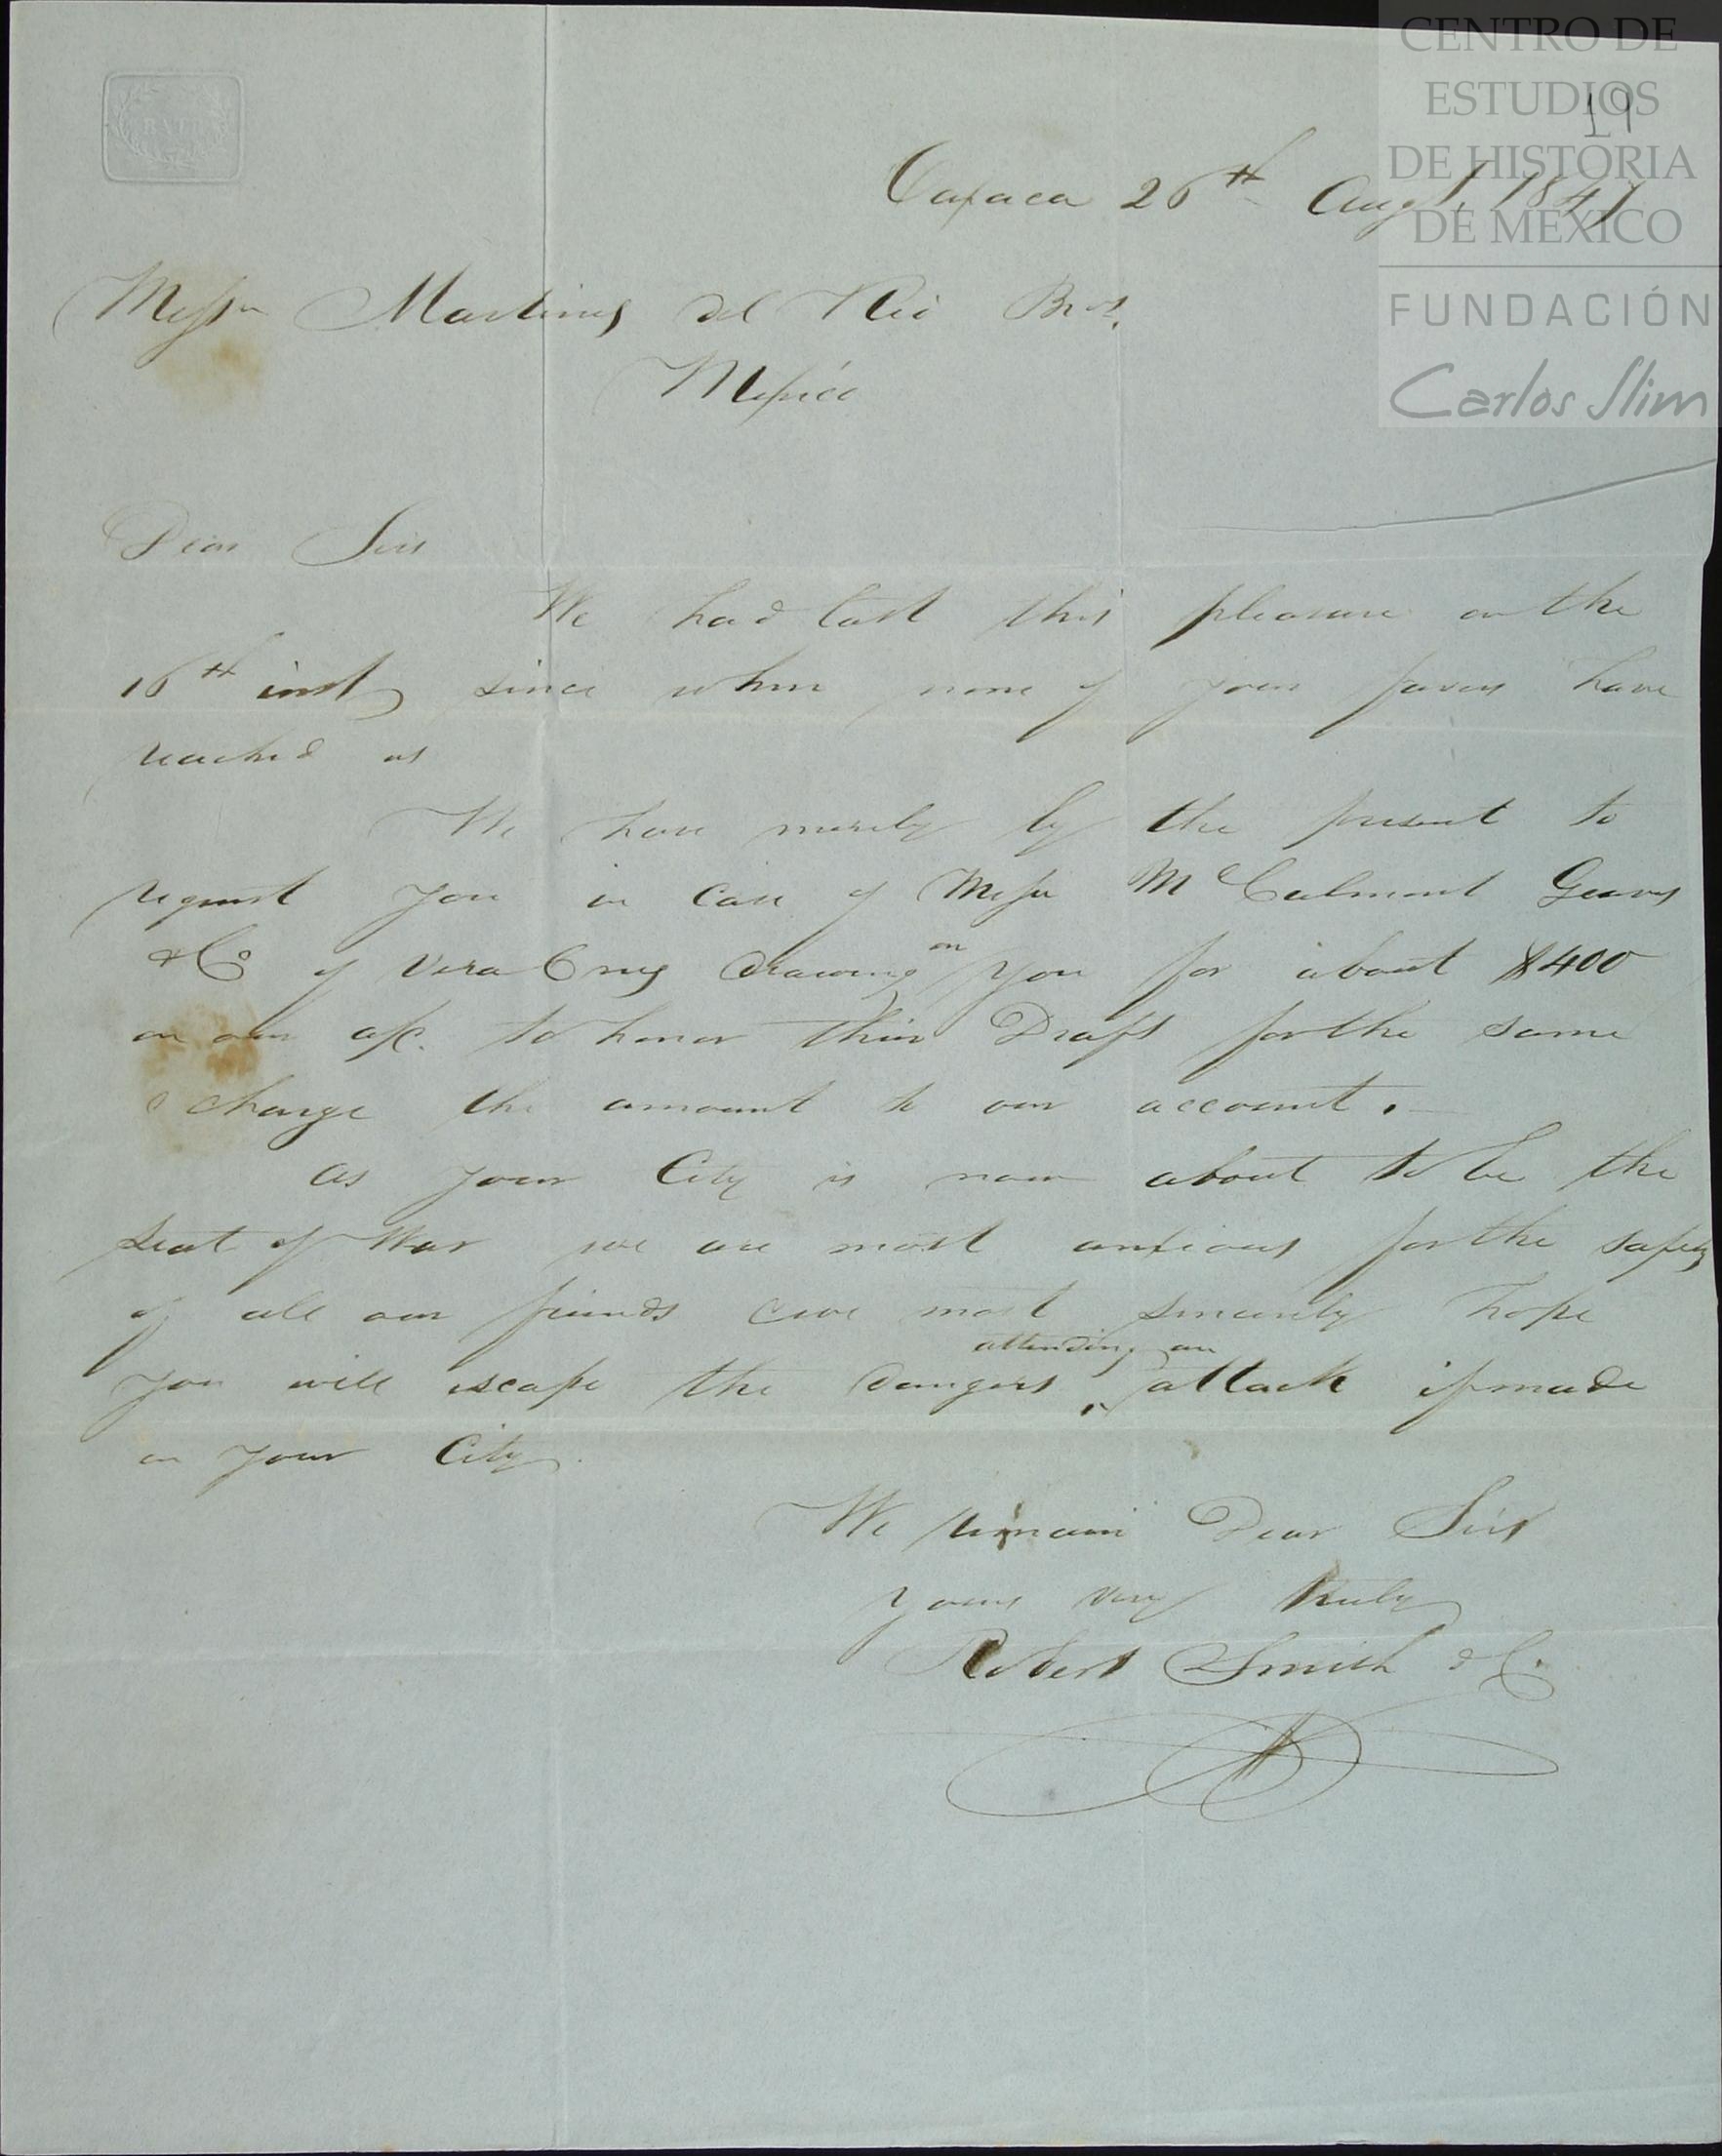 BATH
CENTRO DE
ESTUDIOS
DE HISTORIA
DE MEXICO
FUNDACIÓN
Carlos Slim
19
Oaxaca 26th Augt. 1847
Messrs Martinez del Rio Bros.
Mexico
Dear Sirs
We had last this pleasure on the
16th inst since when none of your favors have
reached us
We have merely by the present to
request you in case of Messrs McCalmont Geaves
& Co of Vera Cruz drawing on you for about $400
on our a/c. to honor their Draft for the same
& charge the amount to our account.
As your City is now about to be the
seat of War we are most anxious for the safety
of all our friends & we most sincerely hope
you will escape the dangers attending an attack if made
on your City.
We remain Dear Sirs
yours very truly
Robert Smith & Co.